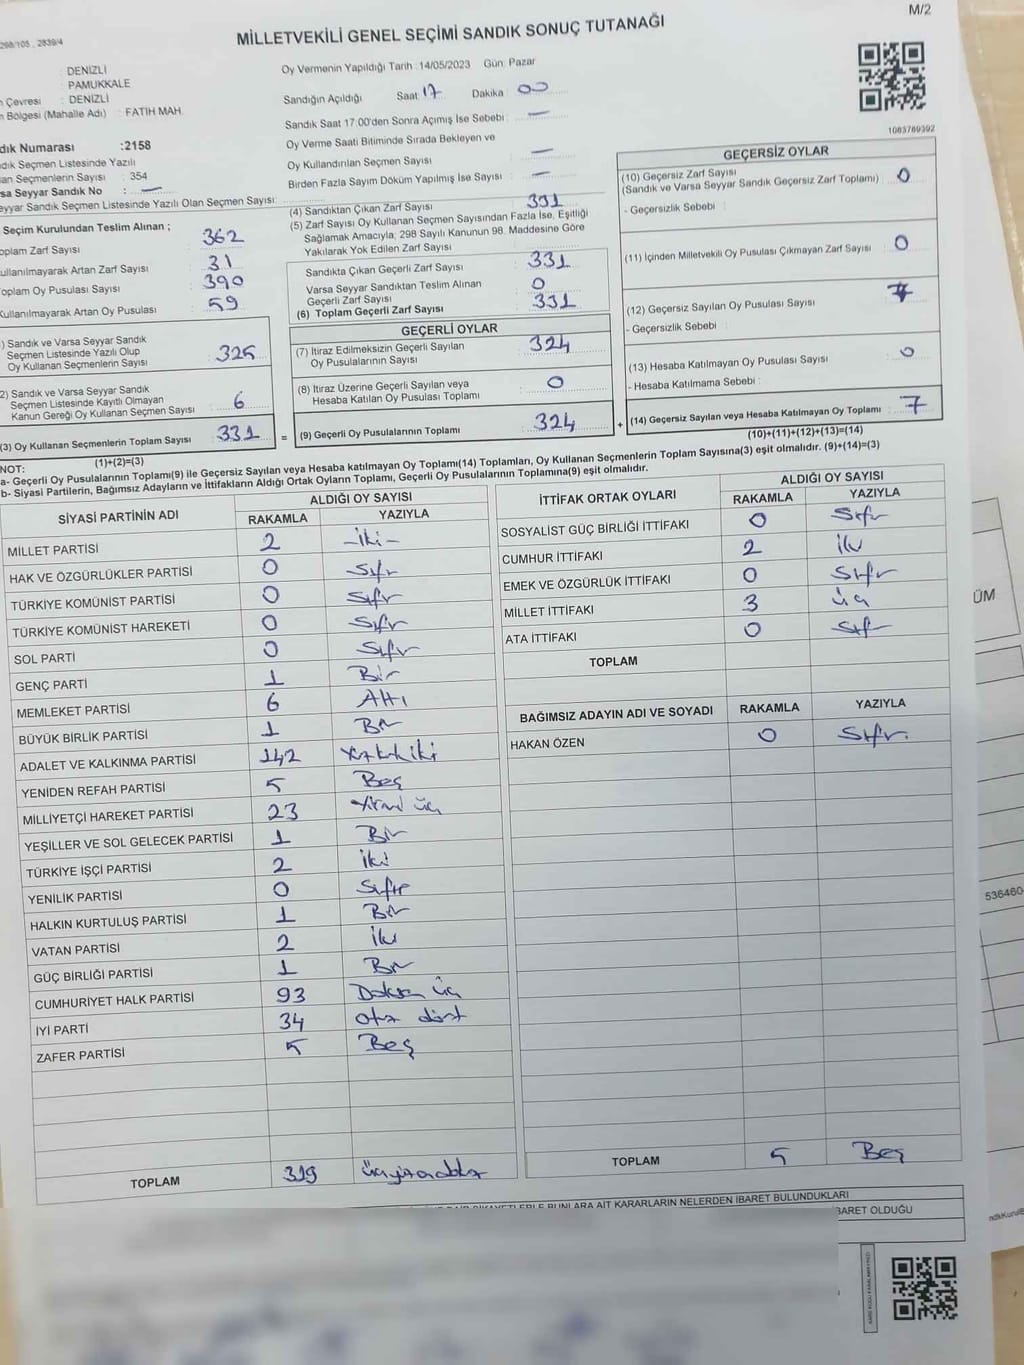 M/2
298/105 , 2839/4
MİLLETVEKİLİ GENEL SEÇİMİ SANDIK SONUÇ TUTANAĞI
: DENİZLİ
: PAMUKKALE
Çevresi : DENİZLİ
Bölgesi (Mahalle Adı) : FATİH MAH.
Numarası :2158
Seçmen Listesinde Yazılı
Seçmenlerin Sayısı : 354
Seyyar Sandık No : —
Sandık Seçmen Listesinde Yazılı Olan Seçmen Sayısı:
Oy Vermenin Yapıldığı Tarih :14/05/2023 Gün: Pazar
Sandığın Açıldığı Saat 17 Dakika 00
Sandık Saat 17:00'den Sonra Açımış İse Sebebi : —
Oy Verme Saati Bitiminde Sırada Bekleyen ve
Oy Kullandırılan Seçmen Sayısı : —
Birden Fazla Sayım Döküm Yapılmış İse Sayısı : —
1063769392
Seçim Kurulundan Teslim Alınan ;
Zarf Sayısı : 362
Artan Zarf Sayısı : 31
Oy Pusulası Sayısı : 390
Artan Oy Pusulası : 59
Sandık ve Varsa Seyyar Sandık
Seçmen Listesinde Yazılı Olup
Oy Kullanan Seçmenlerin Sayısı : 325
2) Sandık ve Varsa Seyyar Sandık
Seçmen Listesinde Kayıtlı Olmayan
Kanun Gereği Oy Kullanan Seçmen Sayısı : 6
(3) Oy Kullanan Seçmenlerin Toplam Sayısı : 331
(1)+(2)=(3)
(4) Sandıktan Çıkan Zarf Sayısı : 331
(5) Zarf Sayısı Oy Kullanan Seçmen Sayısından Fazla İse, Eşitliği
Sağlamak Amacıyla; 298 Sayılı Kanunun 98. Maddesine Göre
Yakılarak Yok Edilen Zarf Sayısı :
Sandıkta Çıkan Geçerli Zarf Sayısı : 331
Varsa Seyyar Sandıktan Teslim Alınan
Geçerli Zarf Sayısı : 0
(6) Toplam Geçerli Zarf Sayısı : 331
GEÇERLİ OYLAR
(7) İtiraz Edilmeksizin Geçerli Sayılan
Oy Pusulalarının Sayısı : 324
(8) İtiraz Üzerine Geçerli Sayılan veya
Hesaba Katılan Oy Pusulası Toplamı : 0
= (9) Geçerli Oy Pusulalarının Toplamı : 324 +
GEÇERSİZ OYLAR
(10) Geçersiz Zarf Sayısı
(Sandık ve Varsa Seyyar Sandık Geçersiz Zarf Toplamı) : 0
- Geçersizlik Sebebi :
(11) İçinden Milletvekili Oy Pusulası Çıkmayan Zarf Sayısı : 0
(12) Geçersiz Sayılan Oy Pusulası Sayısı : 7
- Geçersizlik Sebebi :
(13) Hesaba Katılmayan Oy Pusulası Sayısı : 0
- Hesaba Katılmama Sebebi :
(14) Geçersiz Sayılan veya Hesaba Katılmayan Oy Toplamı : 7
(10)+(11)+(12)+(13)=(14)
NOT:
a- Geçerli Oy Pusulalarının Toplamı(9) ile Geçersiz Sayılan veya Hesaba katılmayan Oy Toplamı(14) Toplamları, Oy Kullanan Seçmenlerin Toplam Sayısına(3) eşit olmalıdır. (9)+(14)=(3)
b- Siyasi Partilerin, Bağımsız Adayların ve İttifakların Aldığı Ortak Oyların Toplamı, Geçerli Oy Pusulalarının Toplamına(9) eşit olmalıdır.
SİYASİ PARTİNİN ADI ALDIĞI OY SAYISI
RAKAMLA YAZIYLA
MİLLET PARTİSİ 2 -İki-
HAK VE ÖZGÜRLÜKLER PARTİSİ 0 Sıfır
TÜRKİYE KOMÜNİST PARTİSİ 0 Sıfır
TÜRKİYE KOMÜNİST HAREKETİ 0 Sıfır
SOL PARTİ 0 Sıfır
GENÇ PARTİ 1 Bir
MEMLEKET PARTİSİ 6 Altı
BÜYÜK BİRLİK PARTİSİ 1 Bir
ADALET VE KALKINMA PARTİSİ 142
YENİDEN REFAH PARTİSİ 5 Beş
MİLLİYETÇİ HAREKET PARTİSİ 23 Yirmi üç
YEŞİLLER VE SOL GELECEK PARTİSİ 1 Bir
TÜRKİYE İŞÇİ PARTİSİ 2 İki
YENİLİK PARTİSİ 0 Sıfır
HALKIN KURTULUŞ PARTİSİ 1 Bir
VATAN PARTİSİ 2 İki
GÜÇ BİRLİĞİ PARTİSİ 1 Bir
CUMHURİYET HALK PARTİSİ 93 Doksan üç
İYİ PARTİ 34 Otuz dört
ZAFER PARTİSİ 5 Beş
TOPLAM 319
İTTİFAK ORTAK OYLARI ALDIĞI OY SAYISI
RAKAMLA YAZIYLA
SOSYALİST GÜÇ BİRLİĞİ İTTİFAKI 0 Sıfır
CUMHUR İTTİFAKI 2 İki
EMEK VE ÖZGÜRLÜK İTTİFAKI 0 Sıfır
MİLLET İTTİFAKI 3 üç
ATA İTTİFAKI 0 Sıfır
TOPLAM
BAĞIMSIZ ADAYIN ADI VE SOYADI RAKAMLA YAZIYLA
HAKAN ÖZEN 0 Sıfır.
TOPLAM 5 Beş
BUNLARA AİT KARARLARIN NELERDEN İBARET BULUNDUKLARI
İBARET OLDUĞU
ÜM
536460